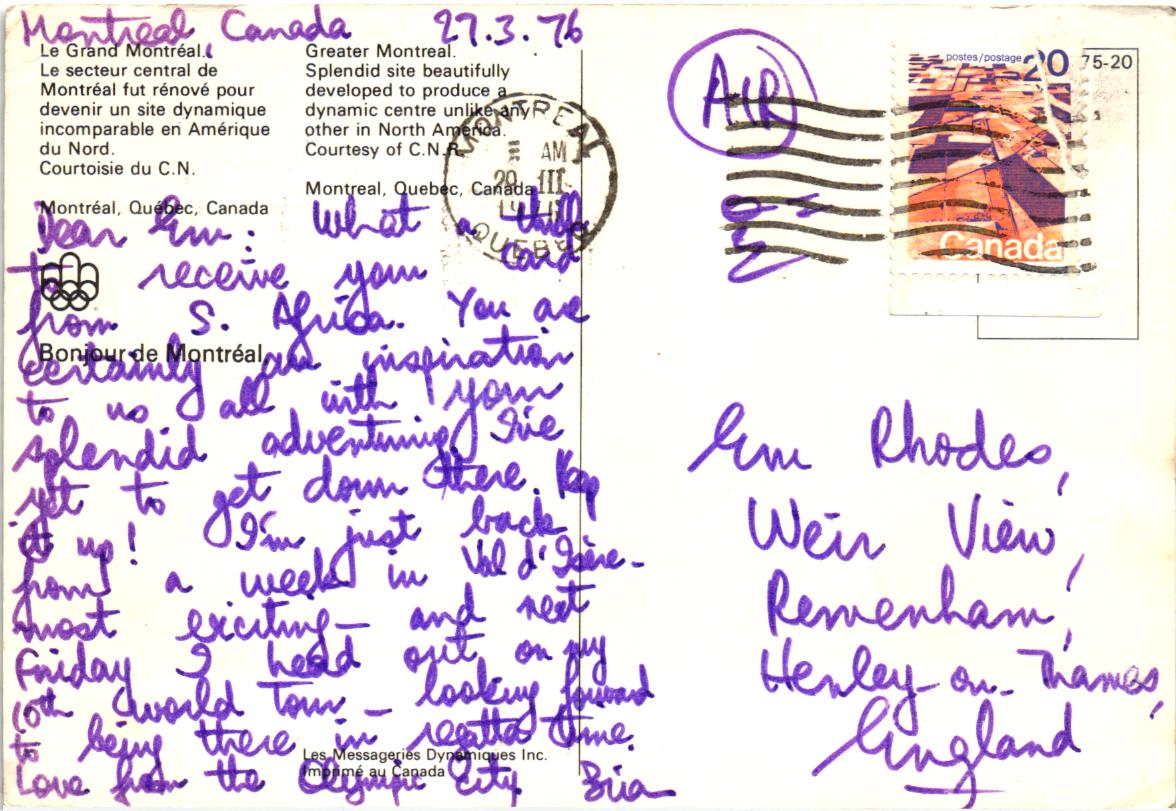 Montreal Canada 27.3.76
Le Grand Montréal.
Le secteur central de
Montréal fut rénové pour
devenir un site dynamique
incomparable en Amérique
du Nord.
Courtoisie du C.N.
Montréal, Québec, Canada
Greater Montreal.
Splendid site beautifully
developed to produce a
dynamic centre unlike any
other in North America.
Courtesy of C.N.R.
Montreal, Quebec, Canada
Bonjour de Montréal
Dear Em: What a thrill
to receive your card
from S. Africa. You are
certainly an inspiration
to us all with your
splendid adventuring I've
yet to get down there. Keep
it up! I'm just back
from a week in Val d'Isère -
most exciting - and next
Friday I head out on my
10th world Tour - looking forward
to being there in regatta time.
Love from the Olympic City. Bria
Les Messageries Dynamiques Inc.
Imprimé au Canada
AIR
MONTREAL
AM
29 III
QUEBEC
postes/postage 20
Canada
75-20
Em Rhodes,
Weir View,
Remenham,
Henley-on-Thames,
England